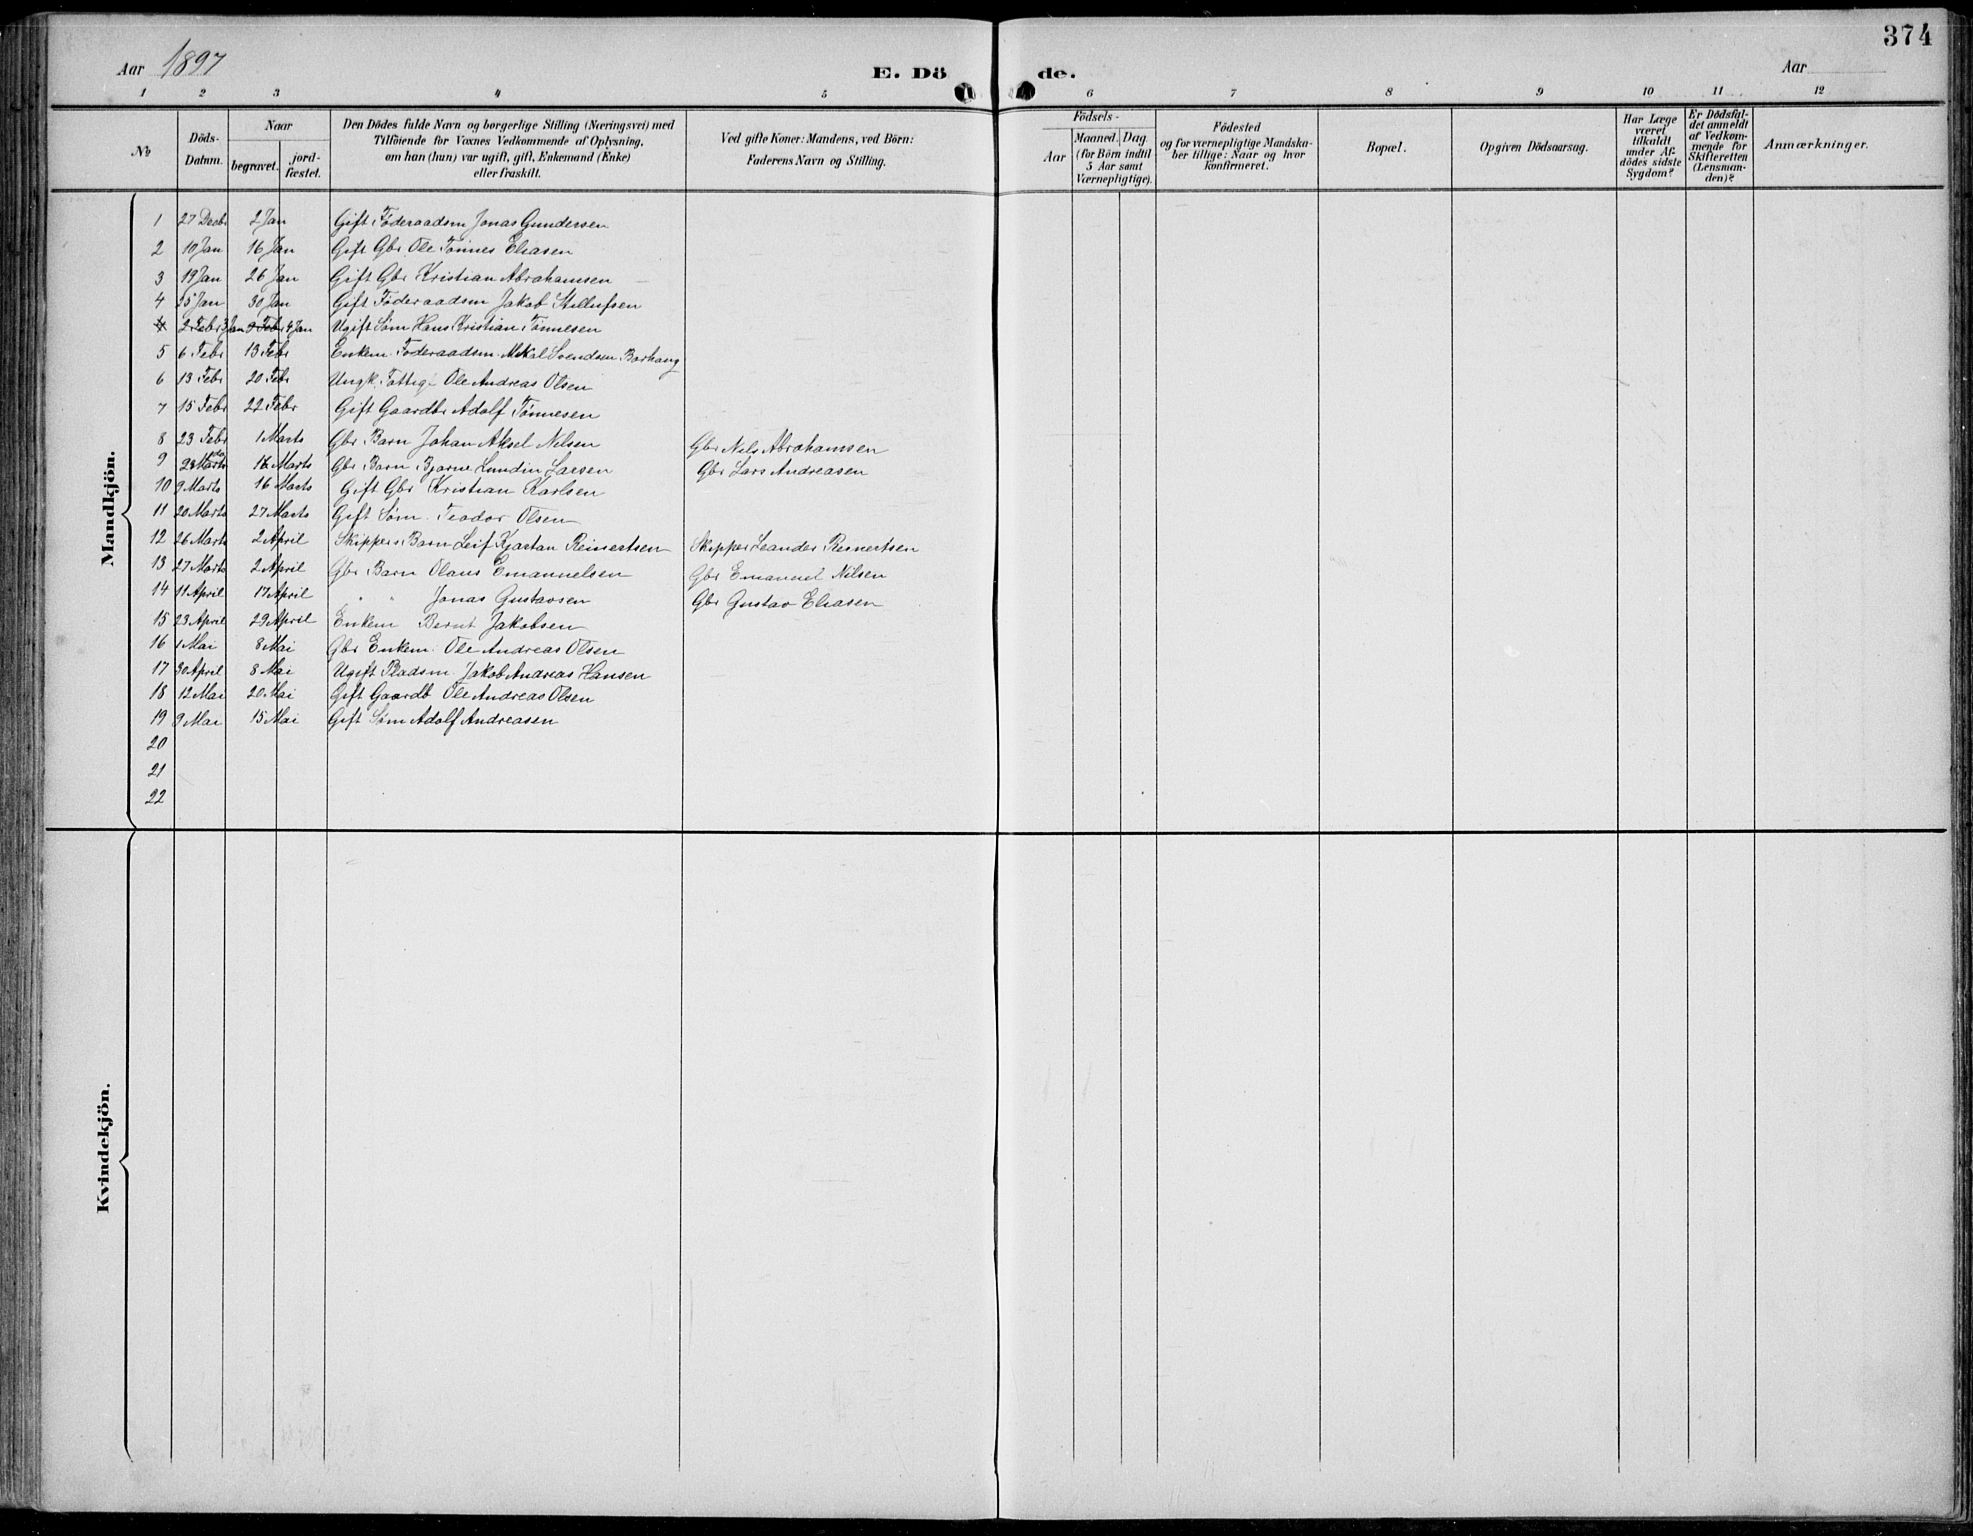 374
Aar 1897 E. Dö de. Aar
1 2 3 4 5 6 7 8 9 10 11 12
No
Döds-Datum.
Naar begravet. jord-fæstet.
Den Dödes fulde Navn og borgerlige Stilling (Næringsvei) med
Tilföiende for Voxnes Vedkommende af Oplysning,
om han (hun) var ugift, gift, Enkemand (Enke)
eller fraskilt.
Ved gifte Koner: Mandens, ved Börn:
Faderens Navn og Stilling.
Födsels-
Aar Maaned. Dag
(for Börn indtil
5 Aar samt
Værnepligtige).
Födested
og for værnepligtige Mandska-
ber tillige: Naar og hvor
konfirmeret.
Bopæl.
Opgiven Dödsaarsag.
Har Læge
været
tilkaldt
under Af-
dödes sidste
Sygdom?
Er Dödsfal-
det anmeldt
af Vedkom-
mende for
Skifteretten
(Lensman-
den)?
Anmærkninger.
Mandkjön.
1 27 Decbr 2 Jan Gift Føderaadsm Jonas Gundersen
2 10 Jan 16 Jan Gift Gbr Ole Tønnes Eliasen
3 19 Jan 26 Jan Gift Gbr Kristian Abrahamsen
4 25 Jan 30 Jan Gift Føderaadsm Jakob Stillufsen
2 Febr 3 Jan 9 Febr 4 Jan Ugift Søm Hans Kristian Tønnesen
5 6 Febr 13 Febr Enkem. Føderaadsm Mikal Svendsen Barhaug
6 13 Febr 20 Febr Ungk. Fattig Ole Andreas Olsen
7 15 Febr 22 Febr Gift Gaardbr Adolf Tønnesen
8 23 Febr 1 Marts Gbr Barn Johan Aksel Nilsen Gbr Nils Abrahamsen
9 Marts 16 Marts Gbr. Barn Bjarne Lundin Larsen Gbr Lars Andreasen
10 9 Marts 16 Marts Gift Gbr Kristian Karlsen
11 20 Marts 27 Marts Gift Søm. Teodor Olsen
12 26 Marts 2 April Skippers Barn Leif Kjartan Reinertsen Skipper Leander Reinertsen
13 27 Marts 2 April Gbr Barn Olaus Emanuelsen Gbr Emanuel Nilsen
14 11 April 17 April " " Jonas Gustavsen Gbr Gustav Eliasen
15 23 April 29 April Enkem Bernt Jakobsen
16 1 Mai 8 Mai Gbr Enkem. Ole Andreas Olsen
17 30 April 8 Mai Ugift Pladsm Jakob Andreas Hansen
18 12 Mai 20 Mai Gift Gaardb Ole Andreas Olsen
19 9 Mai 15 Mai Gift Søm Adolf Andreasen
20
21
22
Kvindekjön.